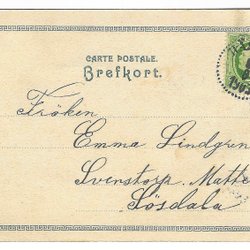 CARTE POSTALE.
Brefkort.
Fröken
Emma Lindgren
Svenstorp. Matte
Sösdala